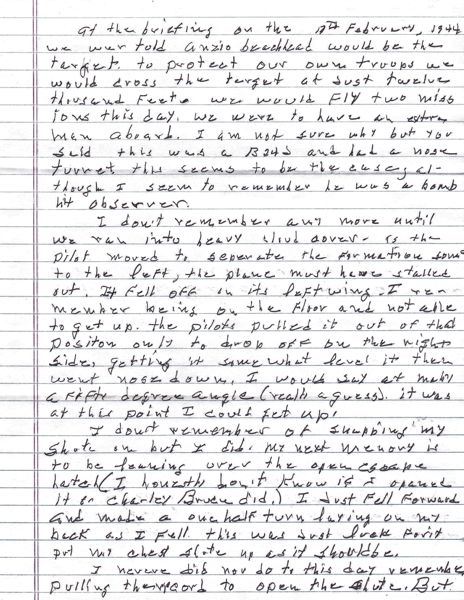 At the briefing on the 17th February, 1944
we wer told Anzio beachhead would be the
target. to protect our own troups we
would cross the target at Just twelve
thousand Feet. we would Fly two miss
ions this day. we were to have an extra
man aboard. I am not sure why but you
said this was a B24J and had a nose
turret this seems to be the case, al-
though I seem to remember he was a bomb
hit observer.
I don't remember any more until
we ran into heavy cloud cover. as the
pilot moved to seperate the formation some
to the left, the plane must have stalled
out. It Fell off on its left wing. I rem-
member being on the Floor and not able
to get up. the pilots pulled it out of that
positon only to drop off on the right
side, getting it somewhat level it then
went nose down. I would say at maby
a fifty degree angle (really a guess). it was
at this point I could get up.
I dont remember of snapping my
shute on but I did. my next memory is
to be leaning over the open escape
hatch (I honestly don't know if I opened
it or Charley Bruen did.) I Just Fell Forward
and made a one half turn laying on my
back as I Fell. this was Just luck For it
put my chest shute up as it should be.
I nevere did nor do to this day remember
pulling the record to open the shute. But